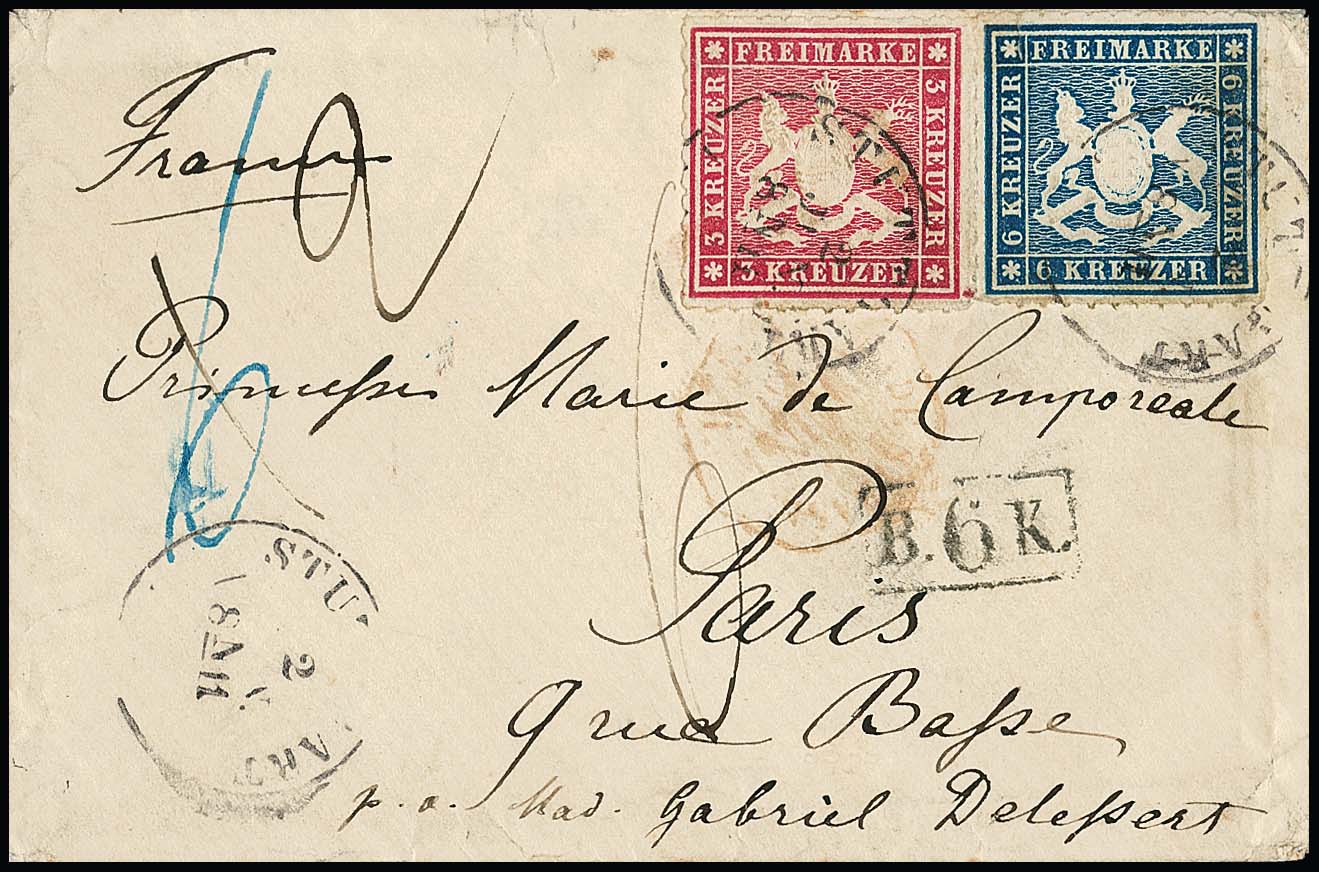 FREIMARKE
3 KREUZER
3 KREUZER
3 KREUZER
FREIMARKE
6 KREUZER
6 KREUZER
6 KREUZER
Princesse Marie de Camporeale
B. 6 K.
Paris
9 rue Basse
p. a. Mad. Gabriel Delessert
STU
2